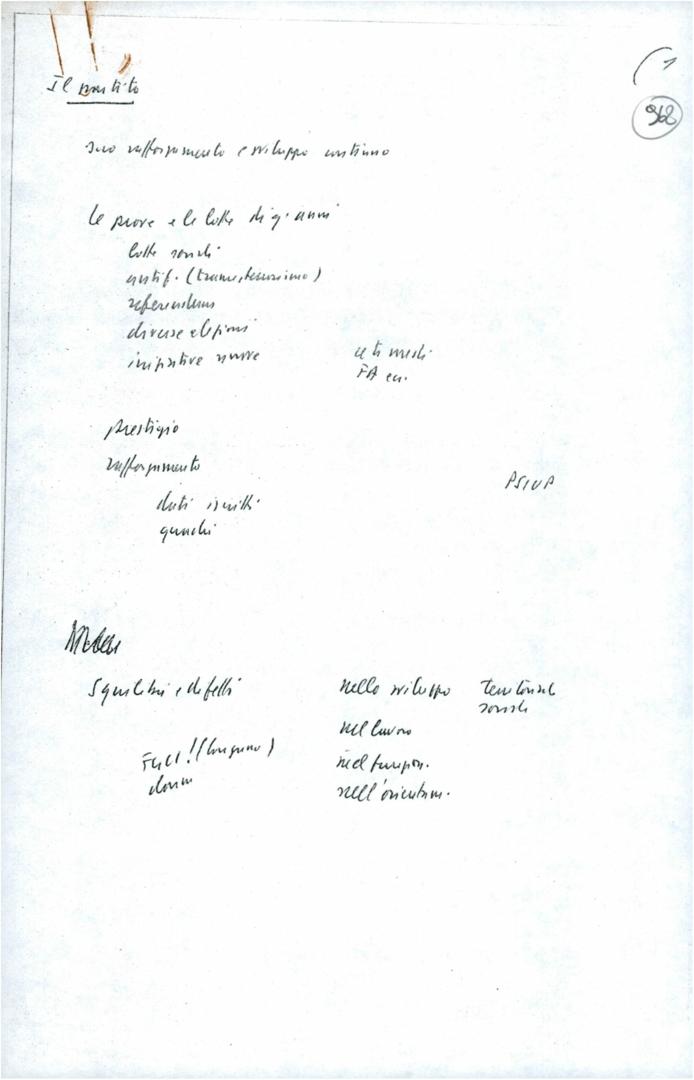 (1
968
Il partito
suo rafforzamento e sviluppo continuo
le prove e le lotte di q. anni
lotte sociali
antif. (trame, terrorismo)
referendum
diverse elezioni
iniziative nuove ceti medi
FA ecc.
prestigio
rafforzamento
PSIUP
dati iscritti
quadri
Squilibri e difetti nello sviluppo territoriale
sociale
nel lavoro
FGCI! nel funzion.
donne nell'orientam.